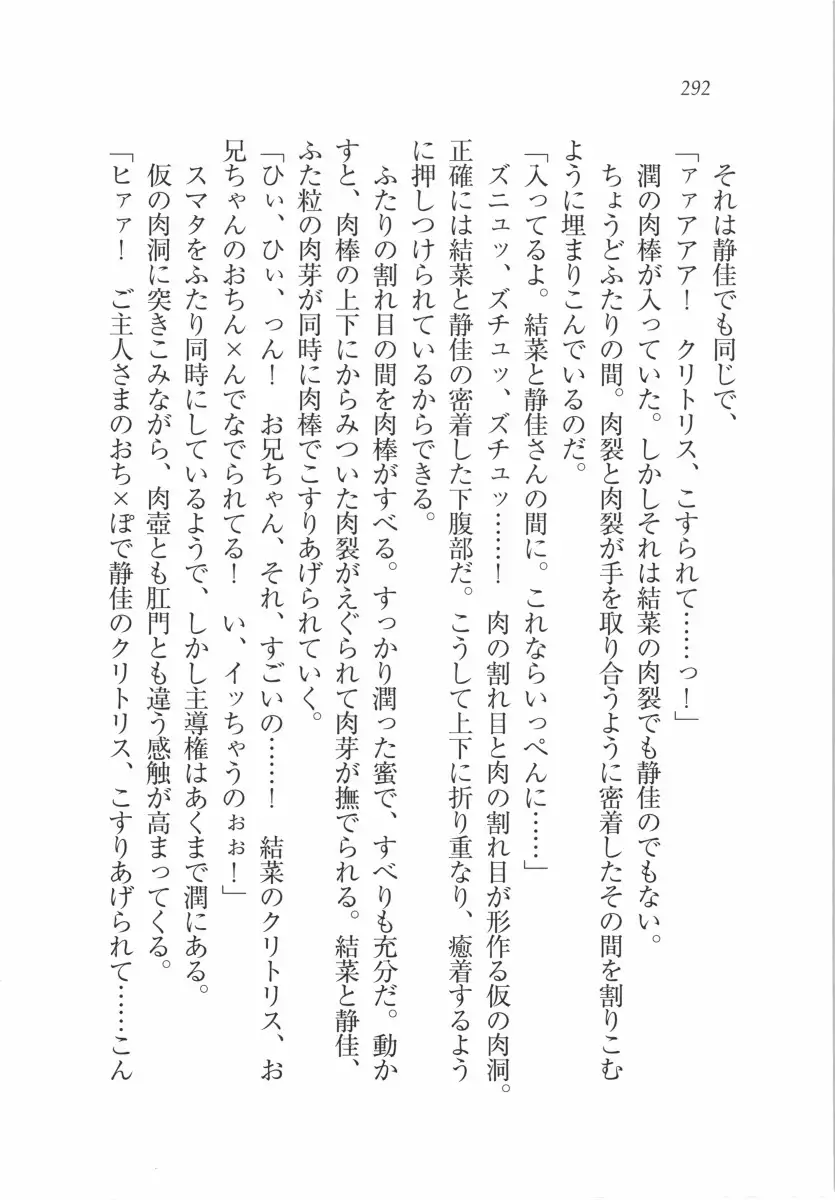 292
それは静佳でも同じで、
「ァァアアア！　クリトリス、こすられて……っ！」
潤の肉棒が入っていた。しかしそれは結菜の肉裂でも静佳のでもない。
ちょうどふたりの間。肉裂と肉裂が手を取り合うように密着したその間を割りこむ
ように埋まりこんでいるのだ。
「入ってるよ。結菜と静佳さんの間に。これならいっぺんに……」
ズニュッ、ズチュッ、ズチュッ……！　肉の割れ目と肉の割れ目が形作る仮の肉洞。
正確には結菜と静佳の密着した下腹部だ。こうして上下に折り重なり、癒着するよう
に押しつけられているからできる。
ふたりの割れ目の間を肉棒がすべる。すっかり潤った蜜で、すべりも充分だ。動か
すと、肉棒の上下にからみついた肉裂がえぐられて肉芽が撫でられる。結菜と静佳、
ふた粒の肉芽が同時に肉棒でこすりあげられていく。
「ひぃ、ひぃ、っん！　お兄ちゃん、それ、すごいの……！　結菜のクリトリス、お
兄ちゃんのおちん×んでなでられてる！　い、イッちゃうのぉぉ！」
スマタをふたり同時にしているようで、しかし主導権はあくまで潤にある。
仮の肉洞に突きこみながら、肉壺とも肛門とも違う感触が高まってくる。
「ヒァァ！　ご主人さまのおち×ぽで静佳のクリトリス、こすりあげられて……こん